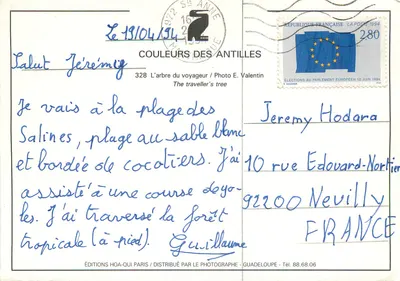 Le 19/04/94
97227 Ste ANNE
COULEURS DES ANTILLES
328 L'arbre du voyageur / Photo E. Valentin
The traveller's tree
Salut Jérémy
Je vais à la plage des
Salines, plage au sable blanc
et bordée de cocotiers. J'ai
assisté à une course de yo-
les. J'ai traversé la forêt
tropicale (à pied).
Guillaume
RÉPUBLIQUE FRANÇAISE LA POSTE 1994
2,80
ELECTIONS AU PARLEMENT EUROPEEN 12 JUIN 1994
Jeremy Hodara
10 rue Edouard-Nortier
92200 Neuilly
FRANCE
ÉDITIONS HOA-QUI PARIS / DISTRIBUÉ PAR LE PHOTOGRAPHE - GUADELOUPE - Tél. 88.68.06